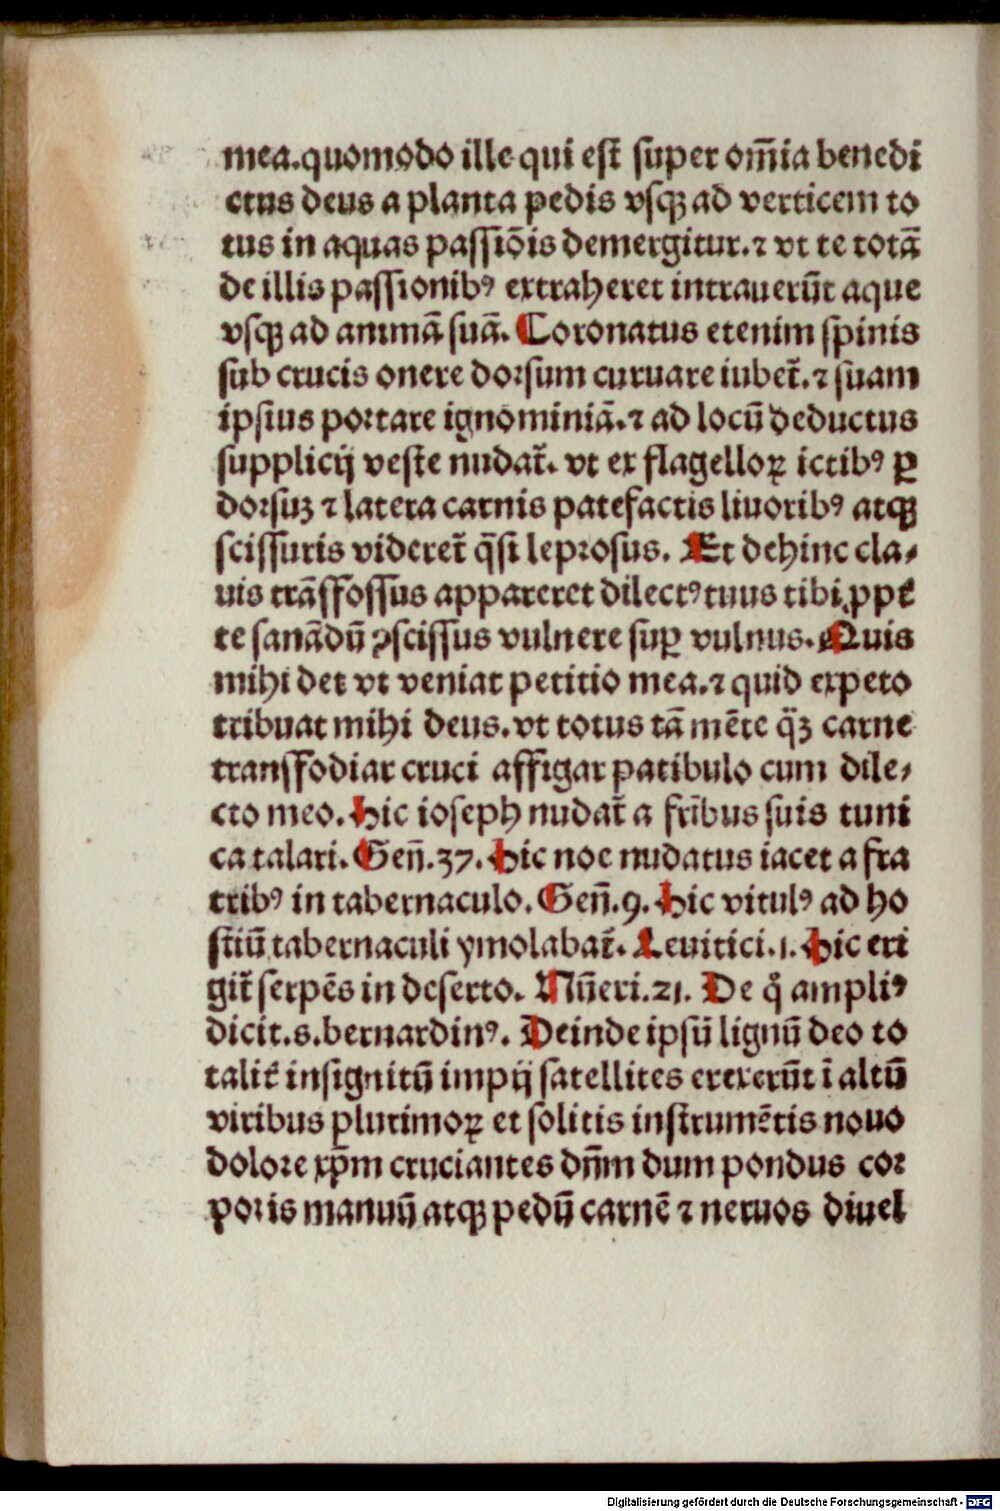 mea.quomodo ille qui est super om̄ia benedi
ctus deus a planta pedis vsqꝫ ad verticem to
tus in aquas passiōis demergitur.⁊ vt te totā
de illis passionibꝰ extraheret intrauerūt aque
vsqꝫ ad animā suā. Coronatus etenim spinis
sub crucis onere doꝛsum curuare iubet̄.⁊ suam
ipsius poꝛtare ignominiā.⁊ ad locū deductus
supplicij veste nudat̄. vt ex flagelloꝝ ictibꝰ ꝑ
doꝛsuꝫ ⁊ latera carnis patefactis liuoribꝰ atqꝫ
scissuris videret̄ q̄si lepꝛosus. Et dehinc cla⸗
uis trāsfossus appareret dilectꝰ tuus tibi ꝓpt̄
te sanādū ꝯscissus vulnere suꝑ vulnus. Quis
mihi det vt veniat petitio mea.⁊ quid expeto
tribuat mihi deus.vt totus tā mēte qꝫ̄ carne
transfodiar cruci affigar patibulo cum dile⸗
cto meo. Hic ioseph nudat̄ a fr̄ibus suis tuni
ca talari. Geñ.37. Hic noe nudatus iacet a fra
tribꝰ in tabernaculo. Geñ.9. Hic vitulꝰ ad ho
stiū tabernaculi ymolabat̄. Leuitici.1. Hic eri
git̄ serpēs in deserto. Nūeri.21. De q̊ ampliꝰ
dicit.s.bernardinꝰ. Deinde ipsū lignū deo to
talit̄ insignitū impij satellites erexerūt ī altū
viribus plurimoꝝ et solitis instrumētis nouo
doloꝛe xp̄m cruciantes dn̄m dum pondus coꝛ
poꝛis manuū atqꝫ pedū carnē ⁊ neruos diuel
Digitalisierung gefördert durch die Deutsche Forschungsgemeinschaft - DFG